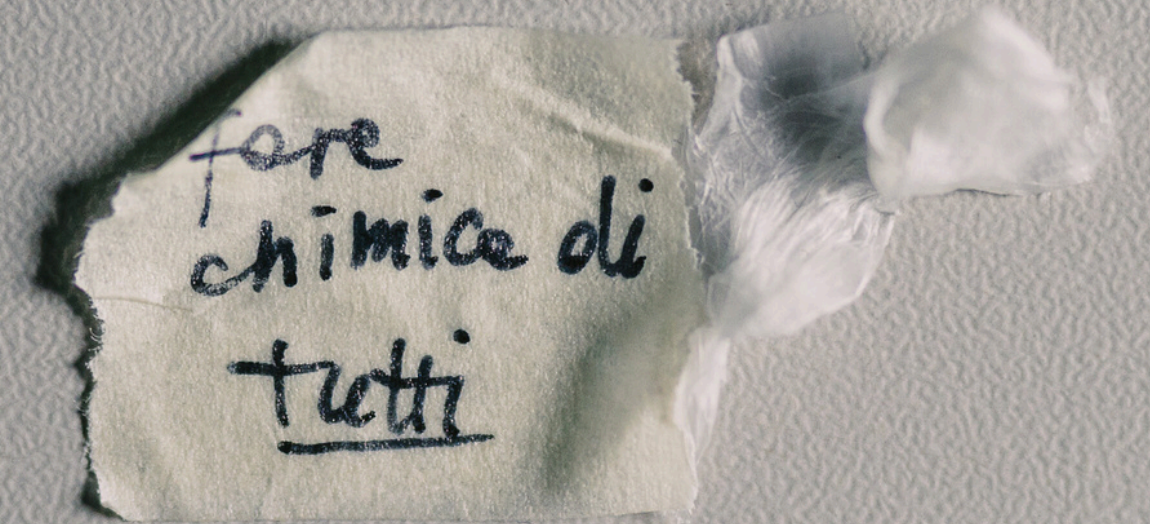 fare
chimica di
tutti